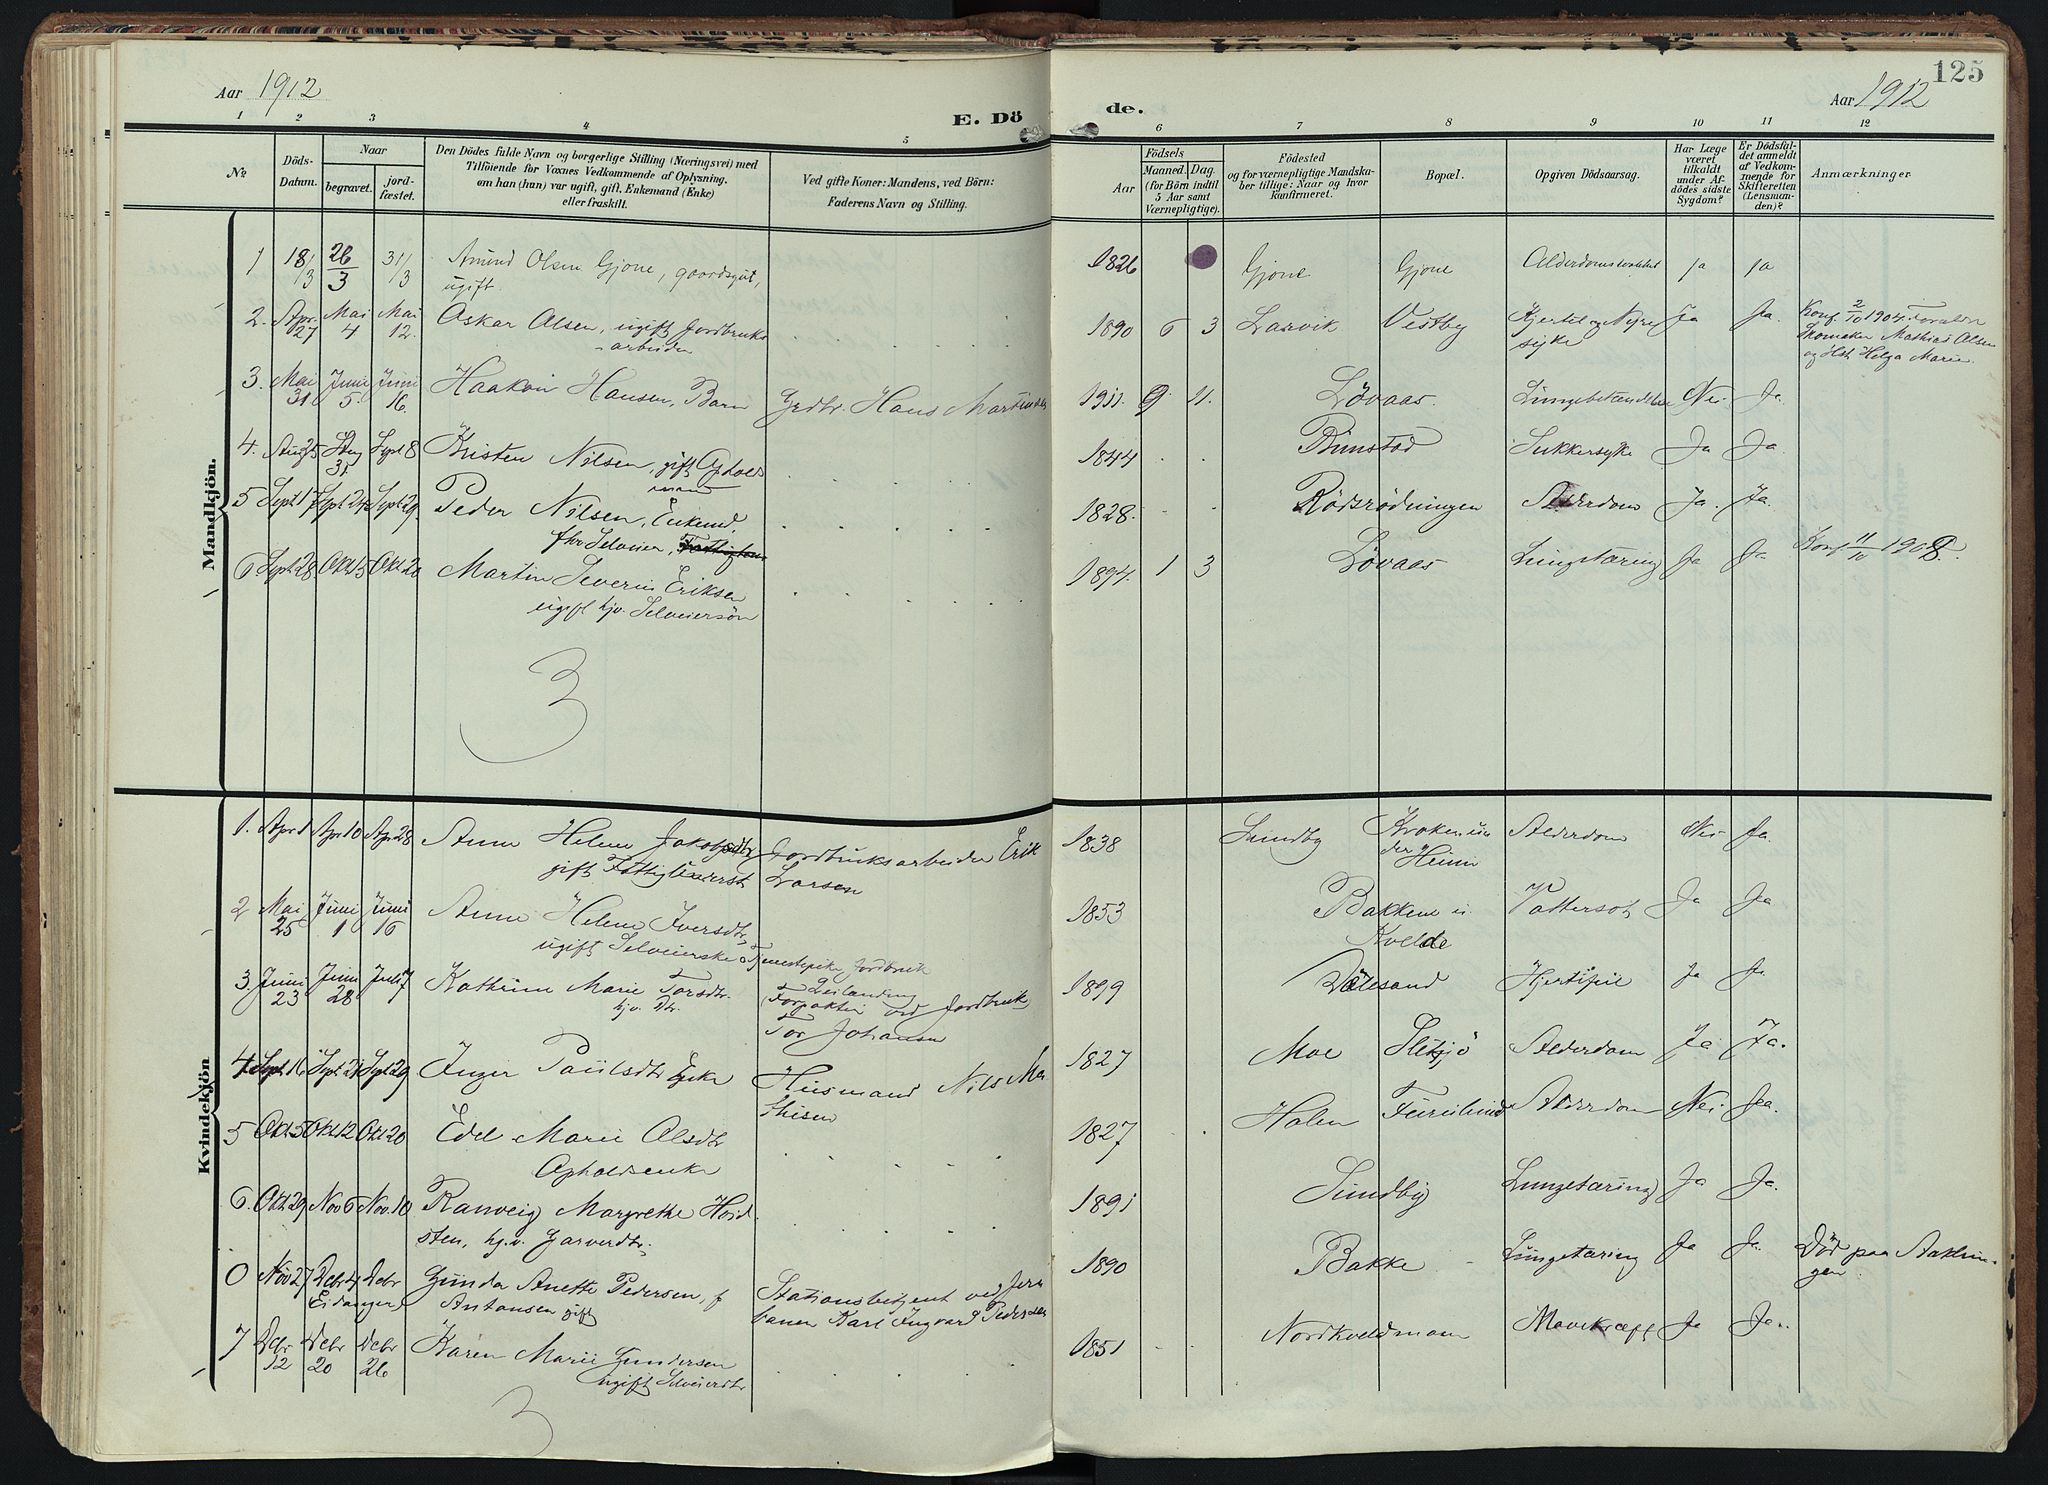 125
Aar 1912
Aar 1912
E. Dö
de.
1 2 3 4 5 6 7 8 9 10 11 12
№
Döds-
Datum.
Naar
begravet.
jord-
fæstet.
Den Dödes fulde Navn og borgerlige Stilling (Næringsvei) med
Tilföiende for Voxnes Vedkommende af Oplysning,
om han (hun) var ugift, gift, Enkemand (Enke)
eller fraskilt.
Ved gifte Koner: Mandens, ved Börn:
Faderens Navn og Stilling.
Födsels
Aar
Maaned. Dag.
(for Börn indtil
5 Aar samt
Værnepligtige).
Födested
og for værnepligtige Mandska-
ber tillige: Naar og hvor
konfirmeret.
Bopæl.
Opgiven Dödsaarsag.
Har Læge
været
tilkaldt
under Af-
dödes sidste
Sygdom?
Er Dödsfal-
det anmeldt
af Vedkom-
mende for
Skifteretten
(Lensman-
den)?
Anmærkninger
Mandkjön.
1 18/3 26/3 31/3 Amund Olsen Gjone, gaardsgut, 1826 Gjone Gjone ja ja
ugift.
2. Apr. 27 Mai 4 Mai 12. Oskar Olsen, ugift Jordbruks 1890 6 3 Larvik Vestby Hjertel og Nyre Ja Ja. Konf. 2/10 1904. Foræld
-arbeider syke Skomaker Mathias Olsen
og Hst. Helga Marie
3. Mai 31 Juni 5. Juni 16. Haakon Hansen, Barn Grdbr. Hans Martinsen 1911. 9 11. Løvaas. Lungebetændelse Nei Ja.
4. Aug 25 Aug 31. Sept 8 Kristen Nilsen, gift 1844 Rimstad Sukkersyke Ja Ja.
mand
5 Sept 17 Sept 24 Sept 29. Peder Nilsen, Enkemd. 1828. Rödsrödningen Alderdom Ja. Ja.
fhv. Selveier,
6 Sept 28 Okt 5 Okt 20 Martin Severin Eriksen 1894. 1 3 Løvaas Lungetæring Ja Ja Konf 11/10 1908.
ugift hjv. Selveiersøn
3
Kvindekjön
1. Apr 1 Apr 10 Apr 28 Anne Helene Jakobsdtr Jordbruksarbeider Erik 1838 Sundby Kroken un Alderdom Nei Ja.
gift Larsen der Heimi
2 Mai 25 Juni 1 Juni 16 Anne Helene Iversdtr, 1853 Bakken i Vattersot Ja Ja
ugift Selveierske Tjenestepike Jordbruk Kvelde
3. Juni 23 Juni 28 Juli 7 Kathrine Marie Torsdtr. 1899 Valesand Hjertefeil Ja Ja.
hjv. Dtr. Forpakter ved Jordbruk
Tor Johansen
4 Sept 16 Sept 21 Sept 29 Inger Paulsdtr Enke Husmand Nils Ma 1827 Moe Slitsjö Alderdom Ja. Ja.
thisen
5 Okt 5 Okt 12 Okt 20 Edel Marie Olsdtr 1827 Holen Furulund Alderdom Nei Ja.
Opholdsenke
6. Okt 29 Nov 6 Nov. 10 Ranveig Margrethe Hvid 1891 Sundby Lungetæring Ja Ja.
sten, hj.v. Garverdtr.
0 Nov 27 Debr 4 Debr Gunda Anette Pedersen, f Stationsbetjent ved Jern 1890 Bakke Lungetæring Ja Ja. Död paa Saklun-
Eidanger Antonsen gift banen Karl Ingvard Pedersen gen.
7 Dcbr 12 Dcbr 20 Dcbr 26 Karen Marie Gundersen 1851 Nordkveldmoen Mavekræft Ja Ja.
ugift Selveierdtr
3